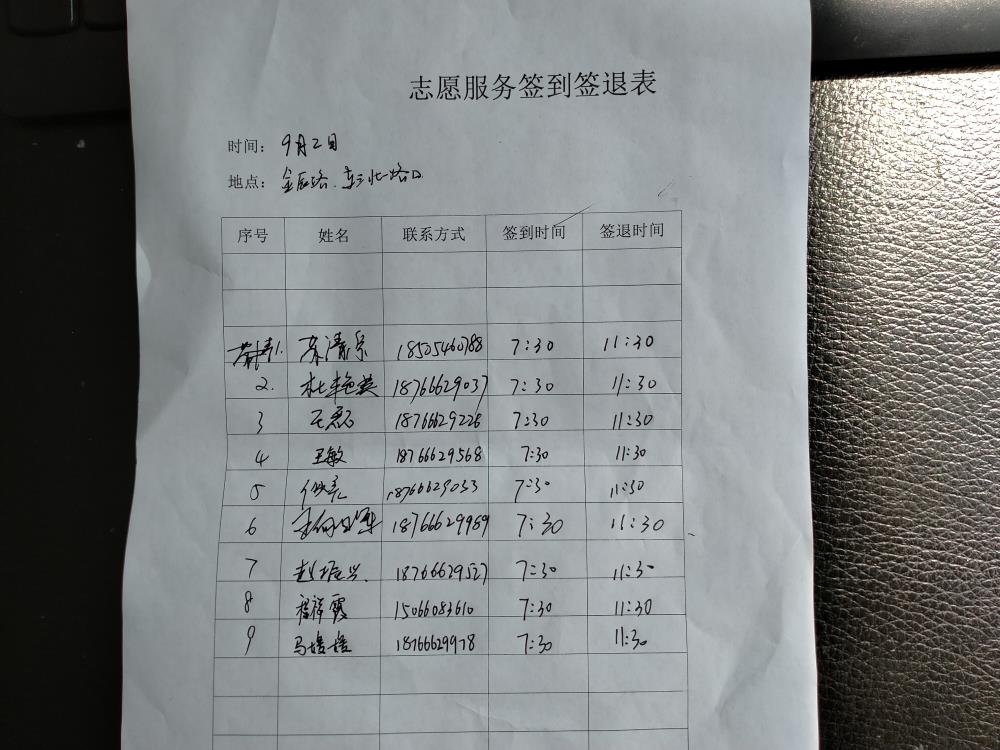 志愿服务签到签退表
时间：9月2日
地点：金辰路、东三北一路口
序号 姓名 联系方式 签到时间 签退时间
1. 苏清泉 18505460788 7:30 11:30
2. 杜艳英 18766629037 7:30 11:30
3 王磊 18766629226 7:30 11:30
4 王敏 18766629568 7:30 11:30
5 18766629033 7:30 11:30
6 18766629959 7:30 11:30
7 赵振兴 18766629527 7:30 11:30
8 程祥霞 15066083610 7:30 11:30
9 马媛媛 18766629978 7:30 11:30